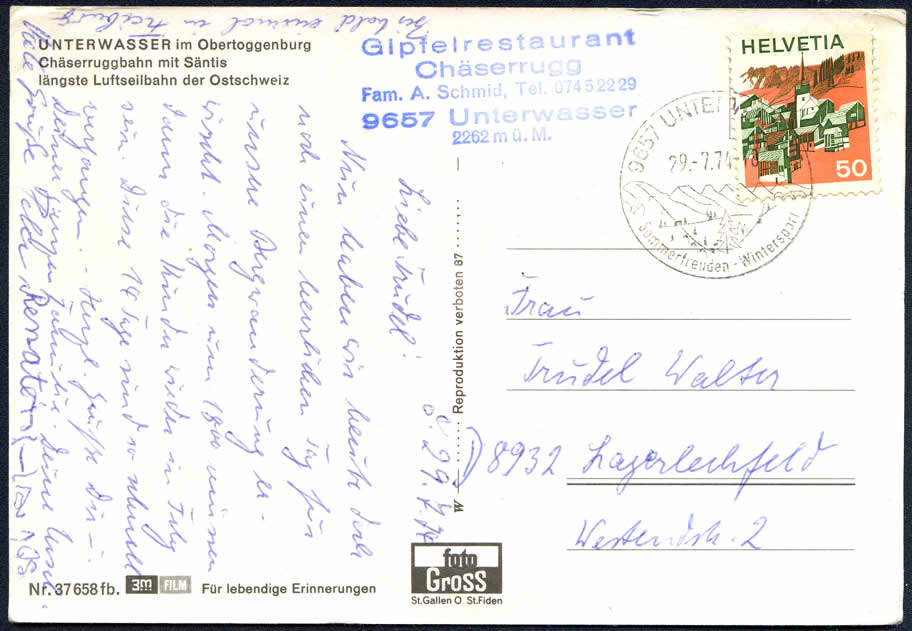 UNTERWASSER im Obertoggenburg
Chäserruggbahn mit Säntis
längste Luftseilbahn der Ostschweiz
Gipfelrestaurant
Chäserrugg
Fam. A. Schmid, Tel. 074 5 22 29
9657 Unterwasser
2262 m ü. M.
HELVETIA
50
9657 UNTER
29.-7.74-
Sommerfreuden - Wintersport
d. 29.7.74
Liebe Trudel!
Nun haben wir heute doch
noch einen herrlichen Tag für
unsere Bergwanderung er-
wischt. Morgen um 1800 müssen
dann die Kinder wieder in
sein. Diese 14 Tage sind so schnell
vergangen. - Herzl. Grüße Dir
Deiner ganzen Familie. Deine
Viele Grüße Renate
Bis bald einmal in
Frau
Trudel Walter
D 8932 Lagerlechfeld
Westendstr. 2
W
Reproduktion verboten 87
Nr. 37658 fb.
3M FILM
Für lebendige Erinnerungen
foto
GROSS
St.Gallen O St.Fiden